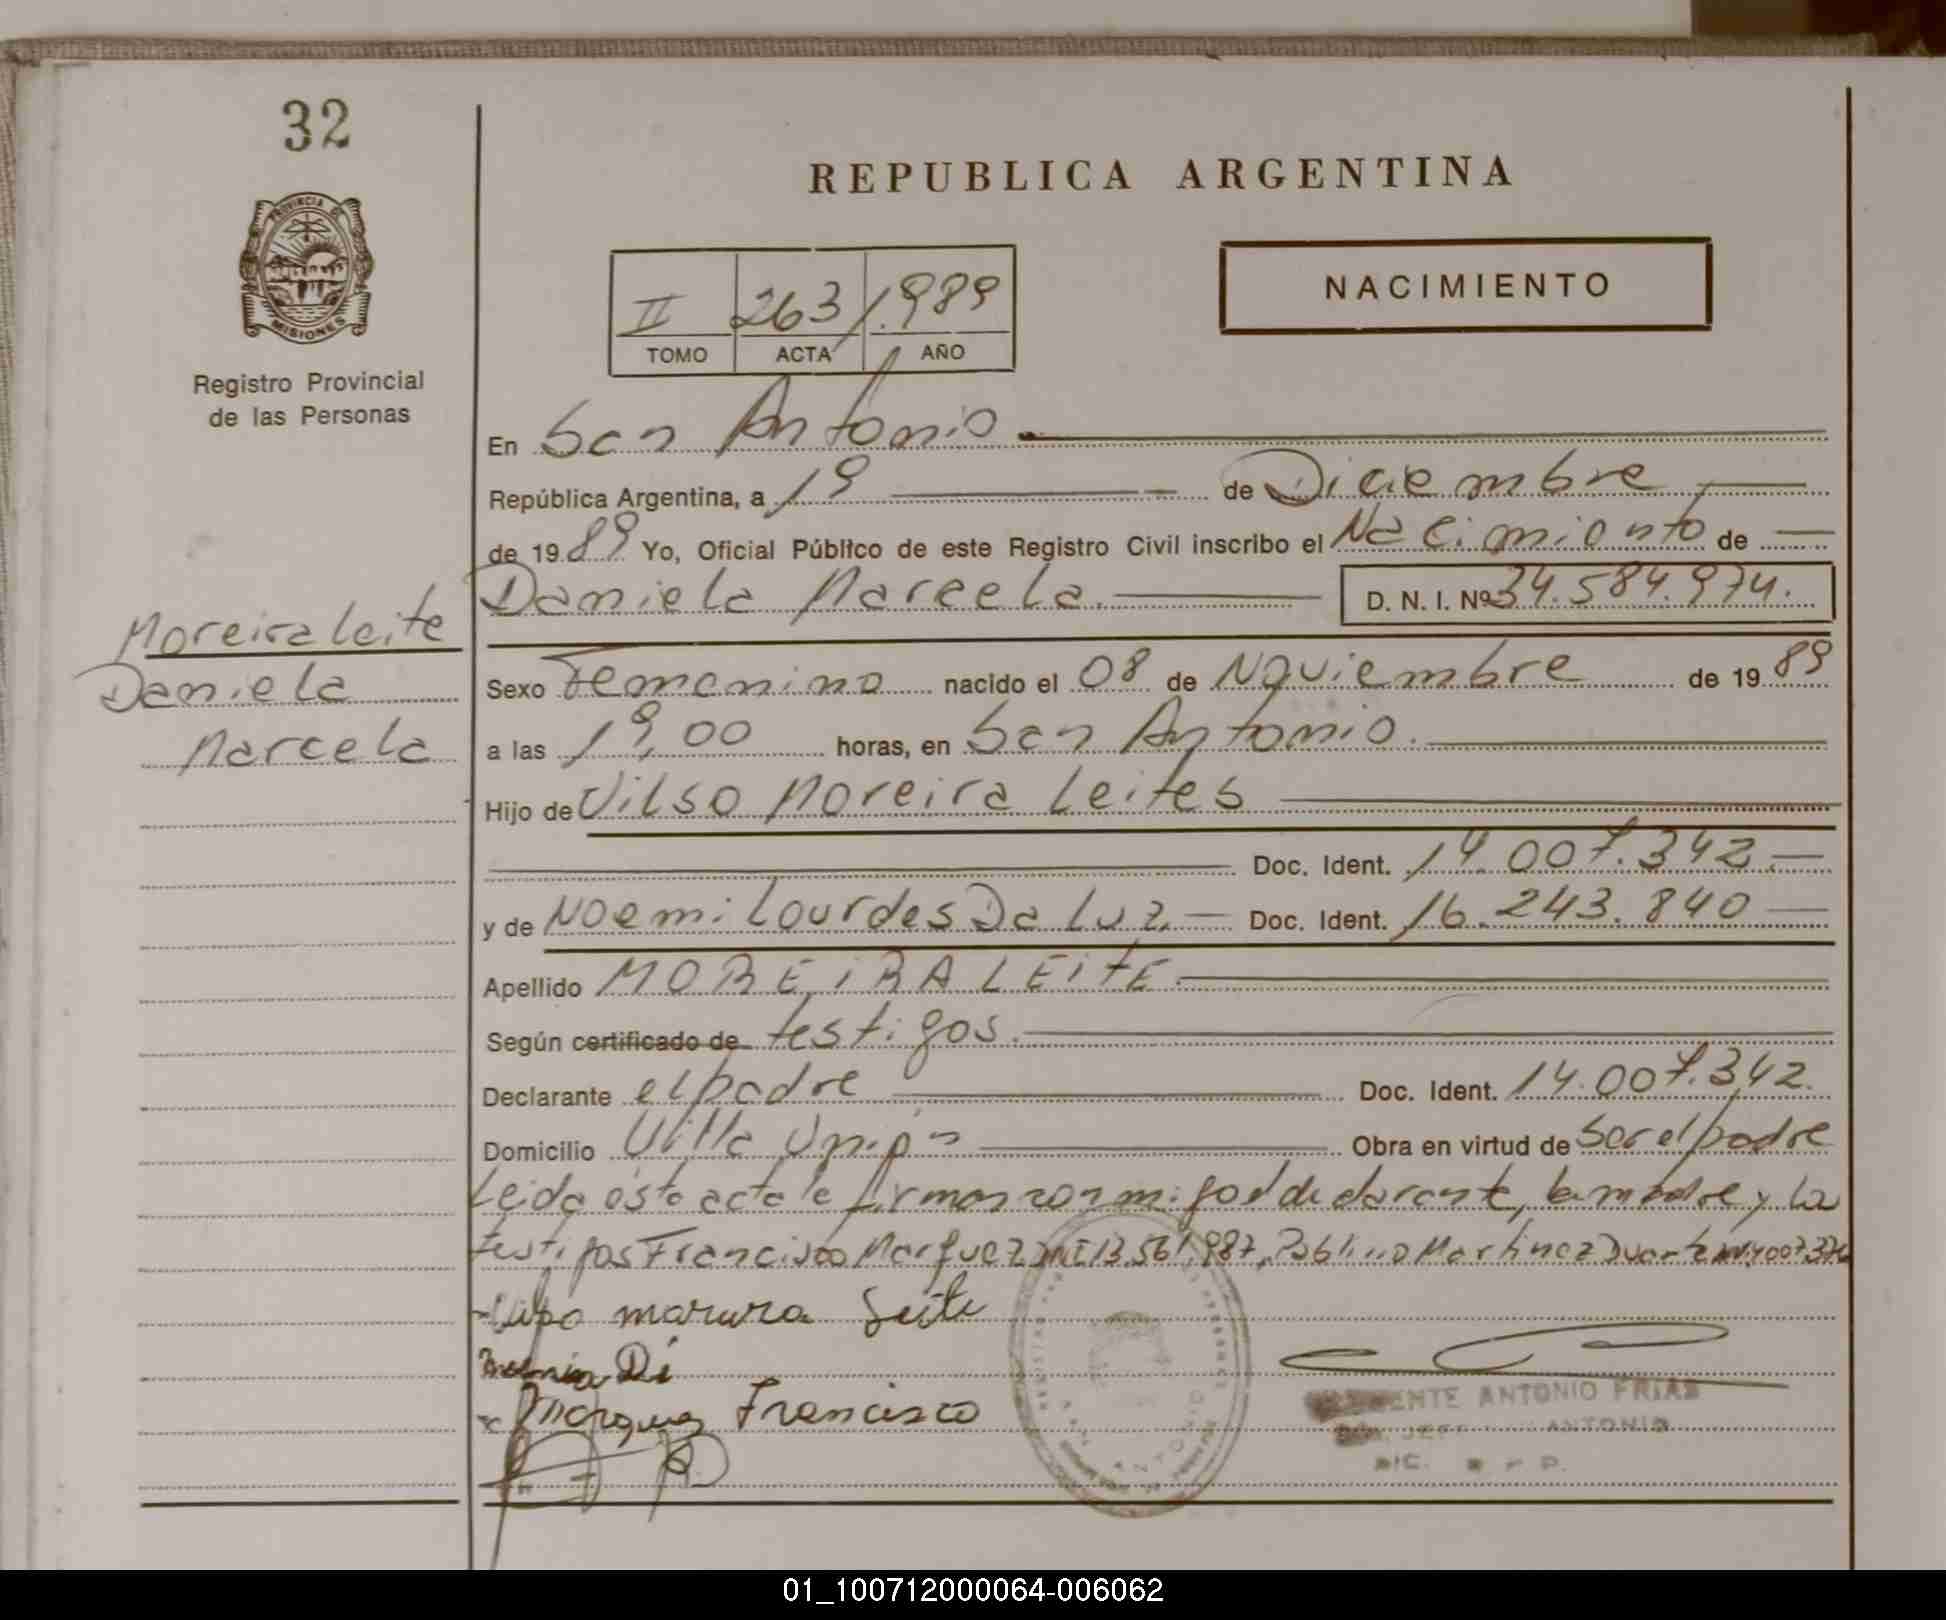 32
REPUBLICA ARGENTINA
PROVINCIA DE
MISIONES
NACIMIENTO
II 263 / 1.989
TOMO ACTA AÑO
Registro Provincial
de las Personas
En San Antonio
República Argentina, a 19 de Diciembre
de 19 89 Yo, Oficial Público de este Registro Civil inscribo el Nacimiento de
Daniela Marcela. D. N. I. Nº 34.584.974.
Moreira Leite
Daniela
Marcela
Sexo Femenino nacido el 08 de Noviembre de 19 89
a las 19,00 horas, en San Antonio.
Hijo de Vilso Moreira Leites
Doc. Ident. 14.007.342
y de Noemi Lourdes Da Luz Doc. Ident. 16.243.840
Apellido MOREIRA LEITE
Según certificado de testigos.
Declarante el padre Doc. Ident. 14.007.342.
Domicilio Villa Unión Obra en virtud de Ser el padre
Leida ésta acta le firman conmigo el declarante, la madre y los
testigos Francisco Marquez DNI 13.561.987, Martinez Duarte
Leite
Marquez Francisco
ANTONIO FRIAS
ANTONIO
01_100712000064-006062